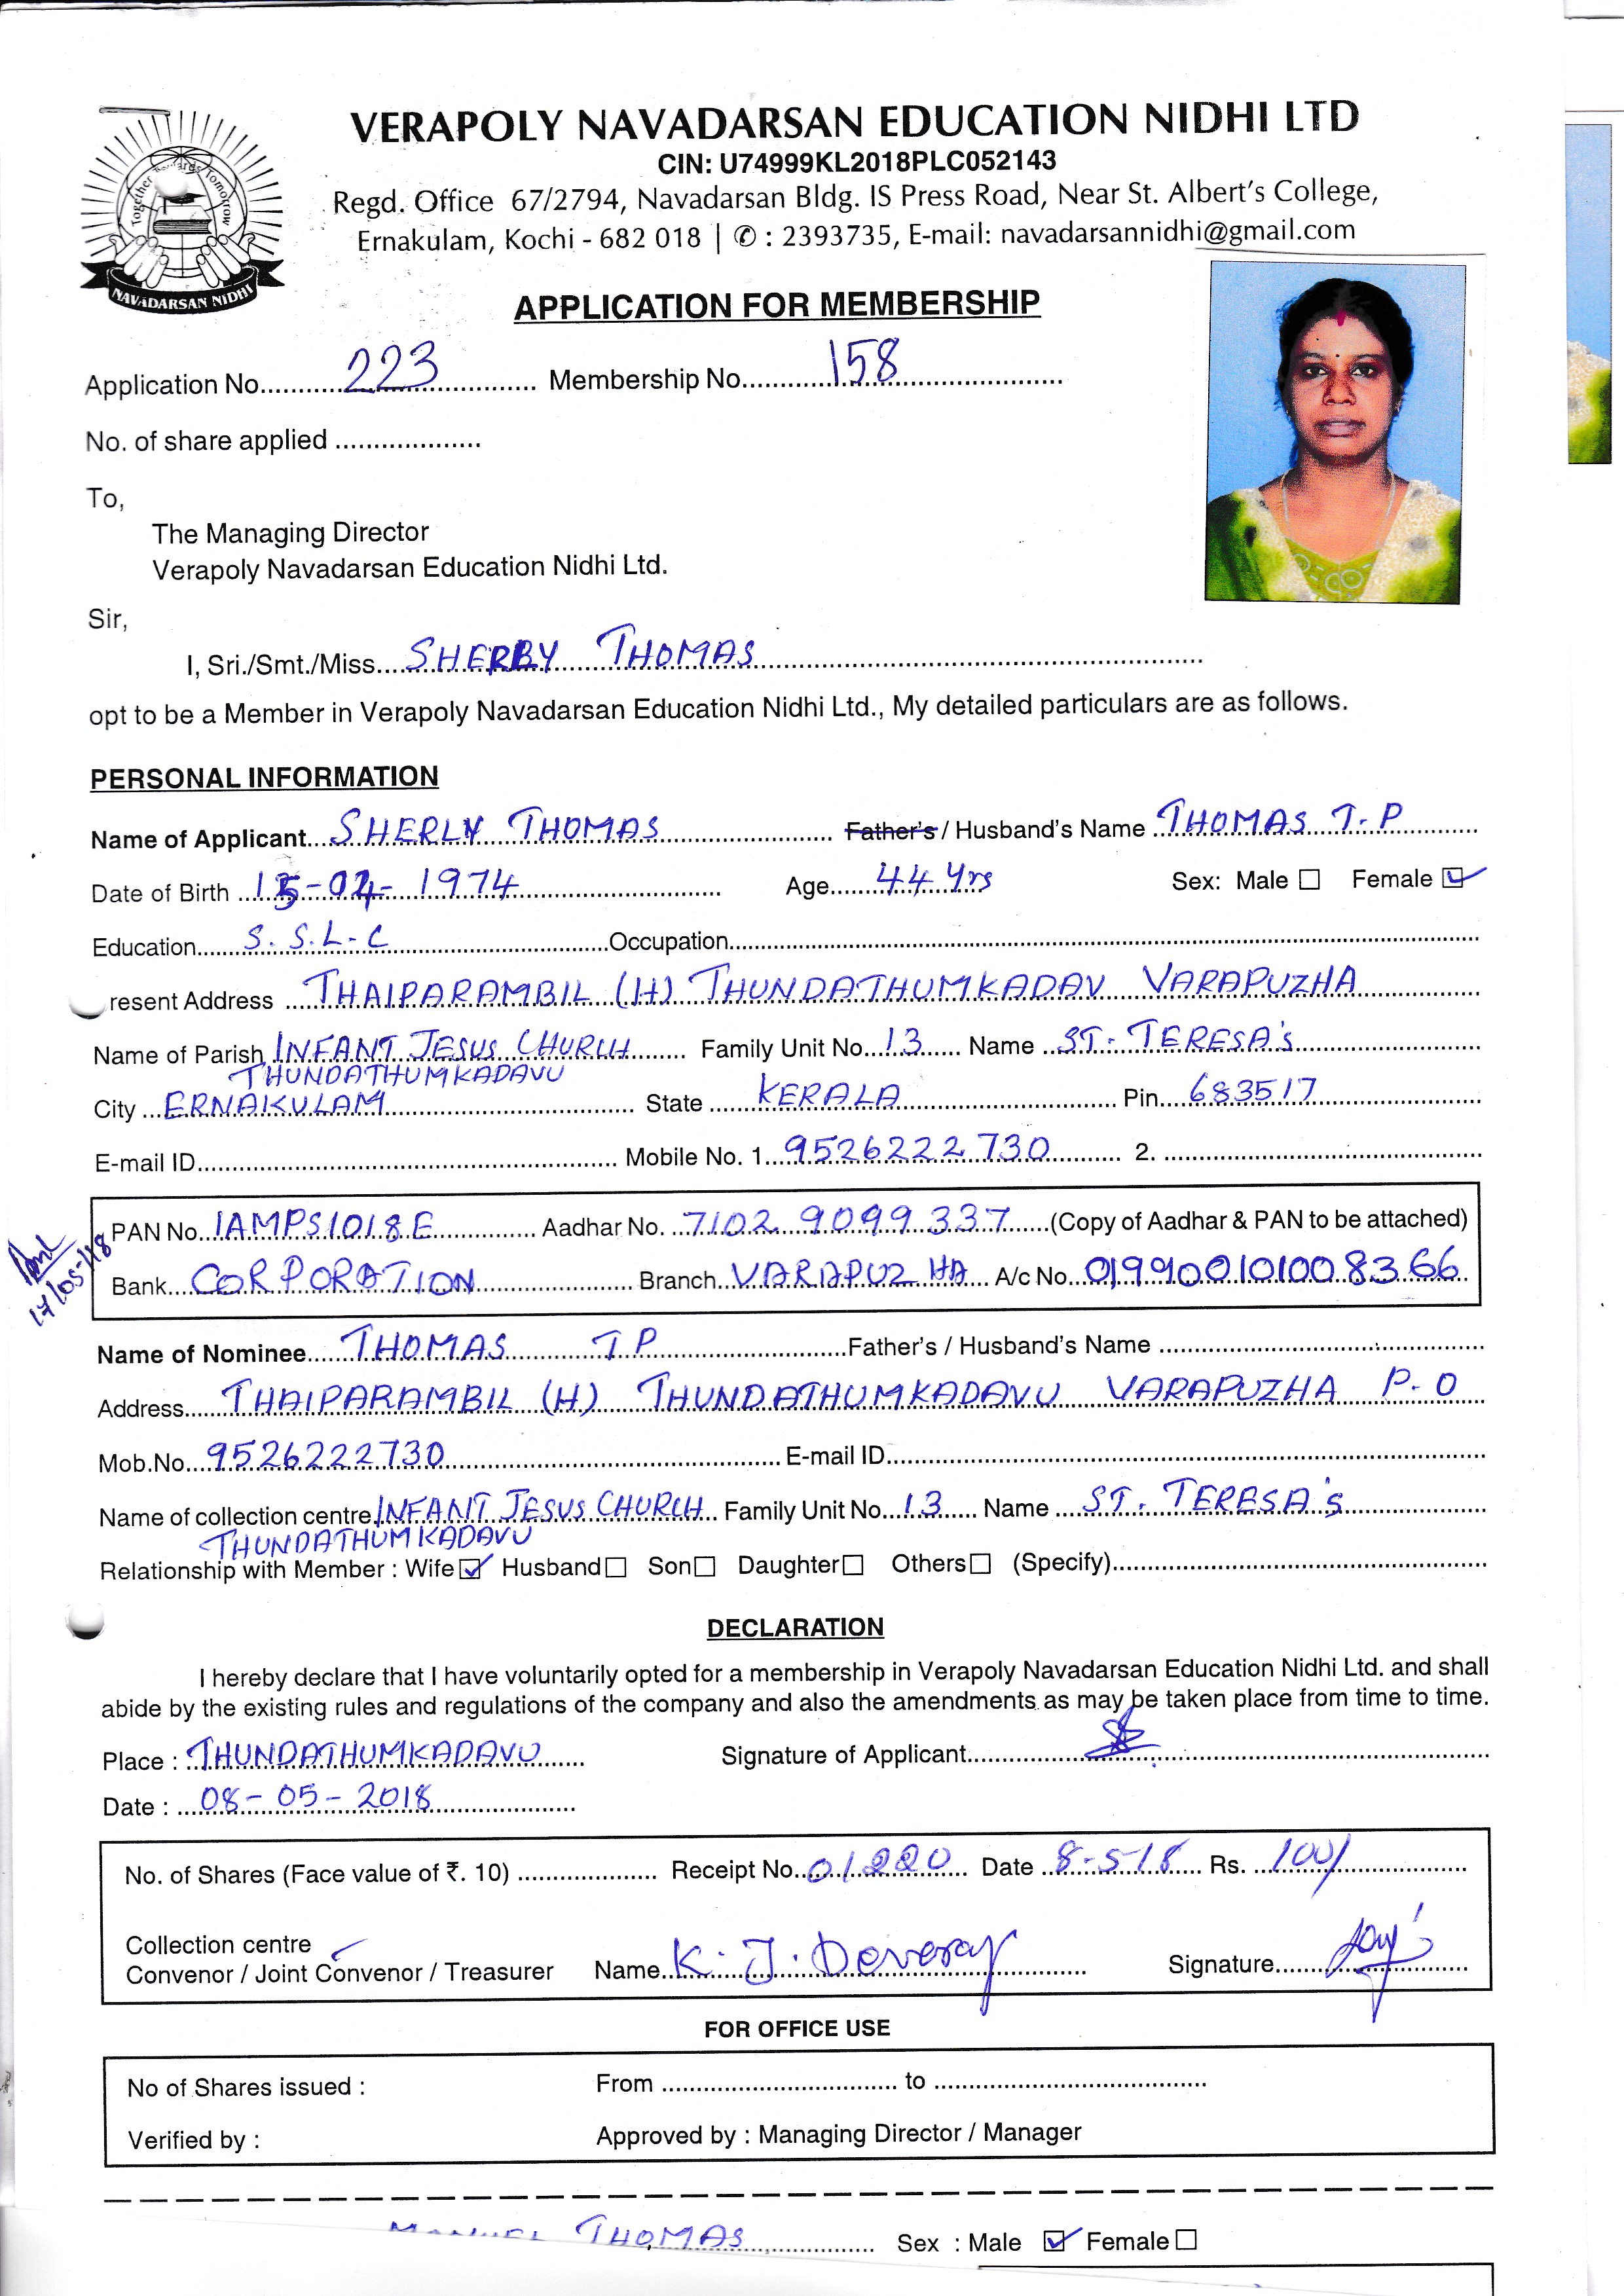 VERAPOLY NAVADARSAN EDUCATION NIDHI LTD
CIN: U74999KL2018PLC052143
Regd. Office 67/2794, Navadarsan Bldg. IS Press Road, Near St. Albert's College,
Ernakulam, Kochi - 682 018 | ✆ : 2393735, E-mail: navadarsannidhi@gmail.com
Together Towards Tomorrow
NAVADARSAN NIDHI
APPLICATION FOR MEMBERSHIP
Application No. 223 Membership No. 158
No. of share applied
To,
The Managing Director
Verapoly Navadarsan Education Nidhi Ltd.
Sir,
I, Sri./Smt./Miss. SHERLY THOMAS
opt to be a Member in Verapoly Navadarsan Education Nidhi Ltd., My detailed particulars are as follows.
PERSONAL INFORMATION
Name of Applicant SHERLY THOMAS Father's / Husband's Name THOMAS T.P
Date of Birth 1974 Age 44 Yrs Sex: Male ☐ Female ☑
Education S.S.L.C Occupation
resent Address THAIPARAMBIL (H) THUNDATHUMKADAV VARAPUZHA
Name of Parish INFANT JESUS CHURCH Family Unit No. 13 Name ST. TERESA's
THUNDATHUMKADAVU
City ERNAKULAM State KERALA Pin 683517
E-mail ID Mobile No. 1. 9526222730 2.
PAN No. IAMPS1018E Aadhar No. 7102 9099 337 (Copy of Aadhar & PAN to be attached)
17/05/18
Bank CORPORATION Branch VARAPUZHA A/c No. 019900101008366
Name of Nominee THOMAS T P Father's / Husband's Name
Address THAIPARAMBIL (H) THUNDATHUMKADAVU VARAPUZHA P.O
Mob.No. 9526222730 E-mail ID
Name of collection centre INFANT JESUS CHURCH Family Unit No. 13 Name ST. TERESA's
THUNDATHUMKADAVU
Relationship with Member : Wife ☑ Husband ☐ Son ☐ Daughter ☐ Others ☐ (Specify)
DECLARATION
I hereby declare that I have voluntarily opted for a membership in Verapoly Navadarsan Education Nidhi Ltd. and shall
abide by the existing rules and regulations of the company and also the amendments as may be taken place from time to time.
Place : THUNDATHUMKADAVU Signature of Applicant
Date : 08-05-2018
No. of Shares (Face value of ₹. 10) Receipt No. 01220 Date 8-5-18 Rs. 100/
Collection centre
Convenor / Joint Convenor / Treasurer Name K.J. Devaraj Signature
FOR OFFICE USE
No of Shares issued : From to
Verified by : Approved by : Managing Director / Manager
THOMAS Sex : Male ☑ Female ☐